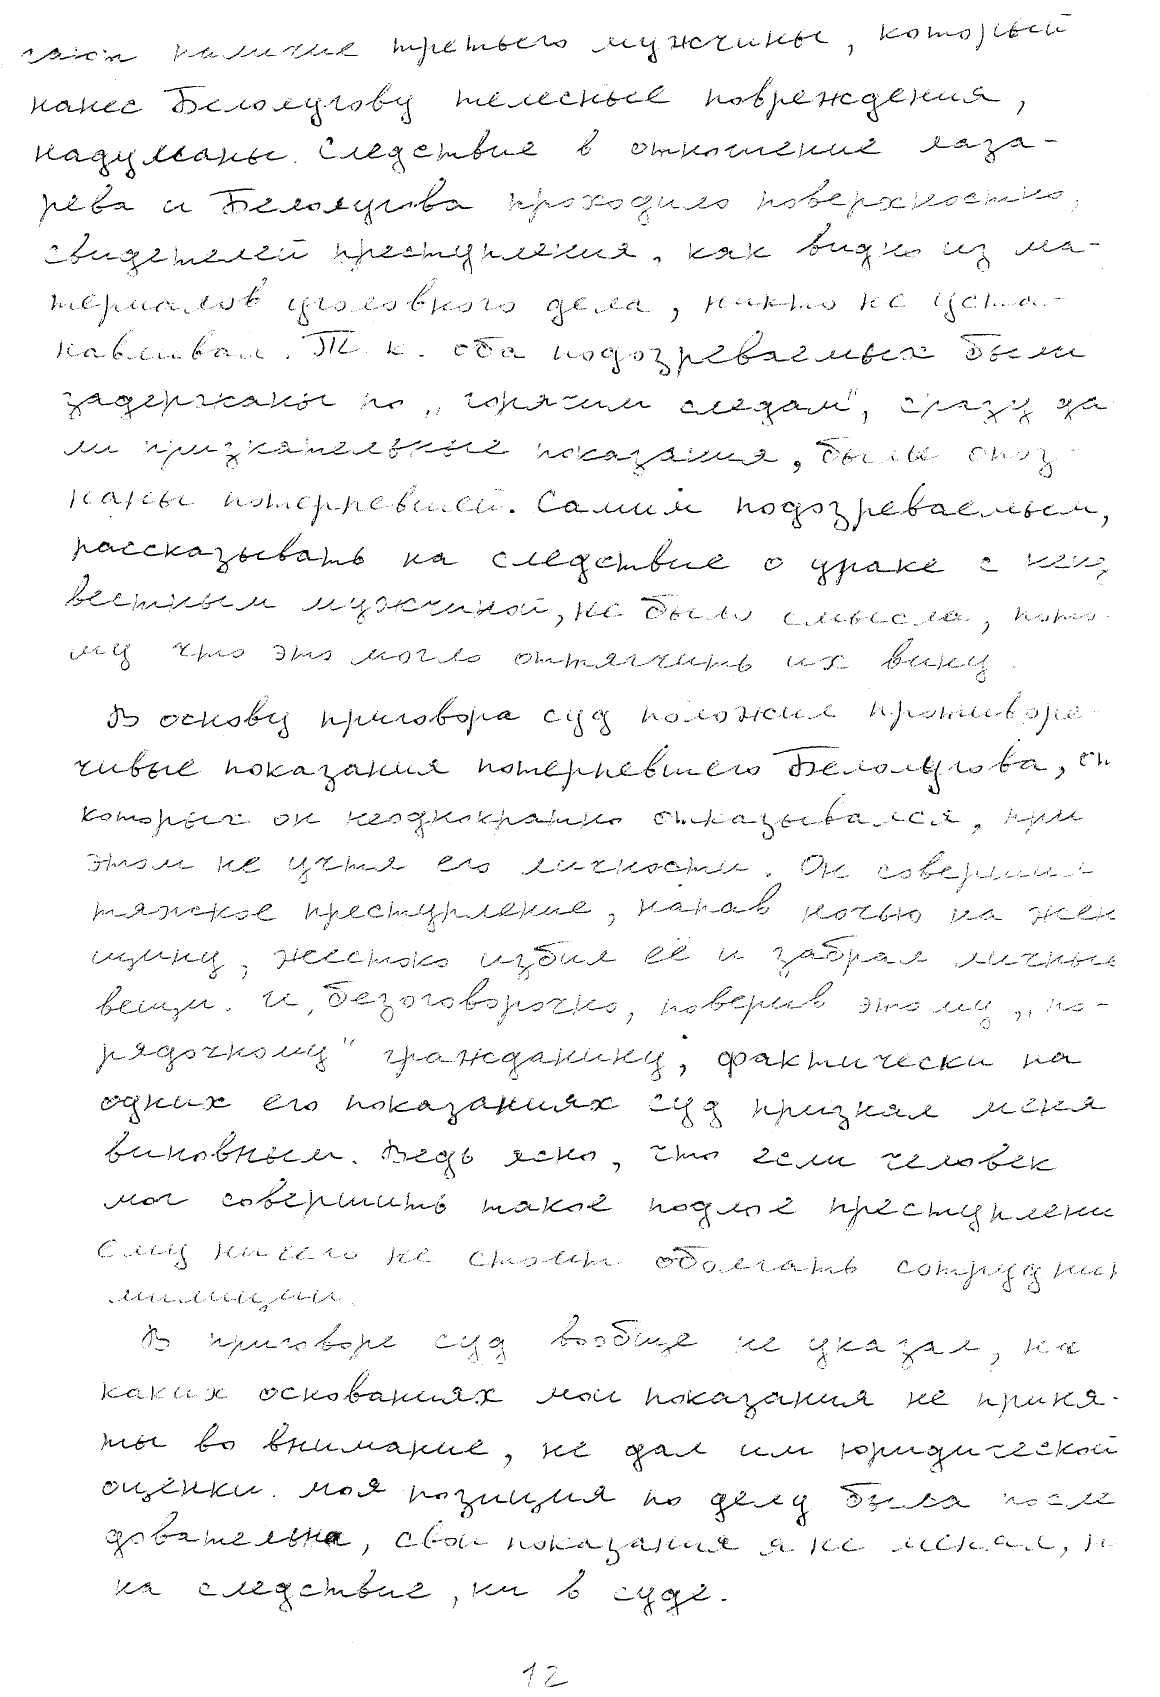 наличие третьего мужчины, который
нанес Беломугову телесные повреждения,
надуманы. Следствие в отношение лаза-
рева и Беломугова проходило поверхностно,
свидетелей преступления, как видно из ма-
териалов уголовного дела, никто не уста-
навливал. Т.к. оба подозреваемых были
задержаны по „горячим следам", сразу да
ли признательные показания, были опоз-
наны потерпевшей. Самим подозреваемым,
рассказывать на следствие о драке с неиз
вестным мужчиной, не было смысла, пото-
му что это могло отягчить их вину.
В основу приговора суд положил противоре-
чивые показания потерпевшего Беломугова, от
которых он неоднократно отказывался, при
этом не учтя его личности. Он совершил
тяжкое преступление, напав ночью на жен
щину, жестоко избил её и забрал личные
вещи. И, безоговорочно, поверив этому „по-
рядочному" гражданину, фактически на
одних его показаниях суд признал меня
виновным. Ведь ясно, что если человек
мог совершить такое подлое преступлени
ему ничего не стоит оболгать сотрудник
милиции.
В приговоре суд вообще не указал, на
каких основаниях мои показания не приня-
ты во внимание, не дал им юридической
оценки. моя позиция по делу была после
довательна, свои показания я не менял, н
на следствие, ни в суде.
12